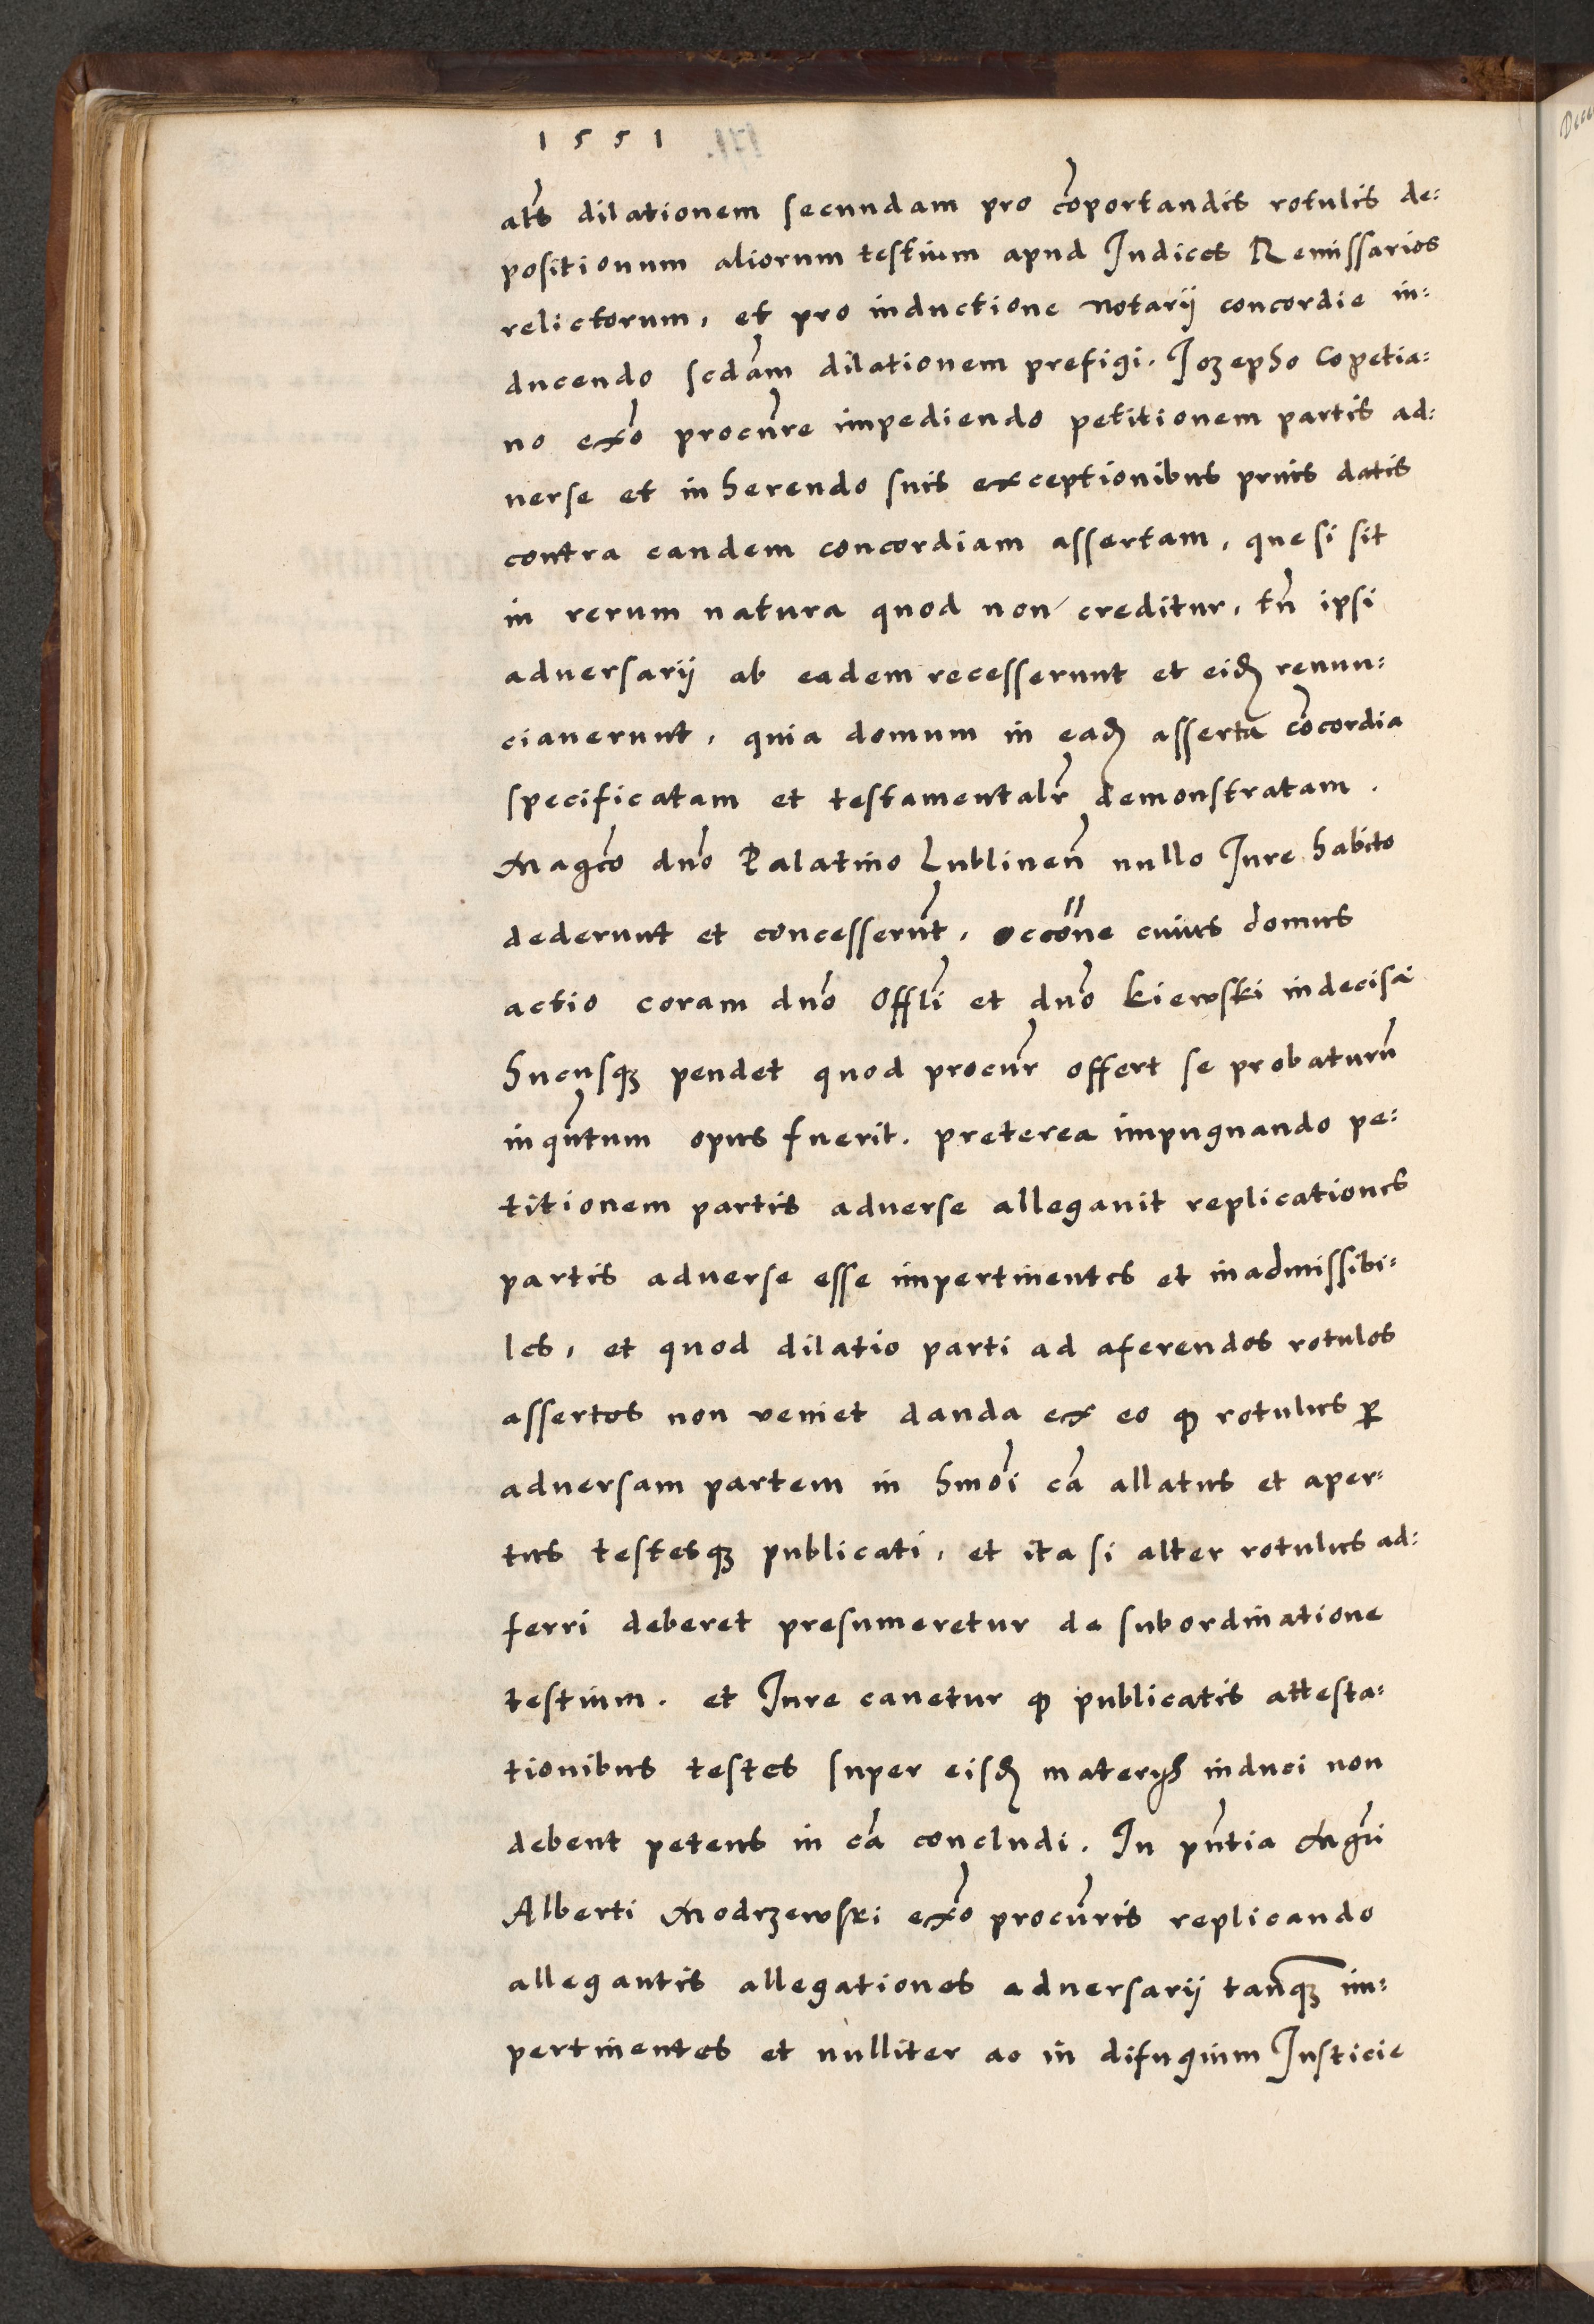 1551
al̃s dilationem secundam pro c̃oportandis rotulis de:
positionum aliorum testium apud Iudices Remissarios
relictorum, et pro inductione notarij concordie in:
ducendo scd̃am dilationem prefigi. Iozepho Copetia:
no ex̃o procũre impediendo petitionem partis ad:
uerse et inherendo suis exceptionibus prius datis
contra eandem concordiam assertam, que si sit
in rerum natura quod non creditur, tñ ipsi
aduersarij ab eadem recesserunt et eid̃ renun:
ciauerunt, quia domum in ead̃ asserta cõcordia
specificatam et testamentalr̃ demonstratam.
Magc̃o dño Palatino Lublineñ nullo Iure habito
dederunt et concesserũt, occõne cuius domus
actio coram dño Offl̃i et dño Kiewski indecisa
hucusqꝫ pendet quod procũr offert se probaturũ
inqũtum opus fuerit. preterea impugnando pe:
titionem partis aduerse allegauit replicationes
partis aduerse esse impertinentes et inadmissibi:
les, et quod dilatio parti ad aferendos rotulos
assertos non veniet danda ex eo ꝙ rotulus ꝑ
aduersam partem in hmõi cã allatus et aper:
tus testesqꝫ publicati, et ita si alter rotulus ad:
ferri deberet presumeretur de subordinatione
testium. et Iure cauetur ꝙ publicatis attesta:
tionibus testes super eisd̃ materijs induci non
debent petens in cã concludi. In pñtia Mgr̃i
Alberti Modrzewski ex̃o procũris replicando
allegantis allegationes aduersarij tanq̃ꝫ im:
pertinentes et nulliter ac in difugium Iusticie